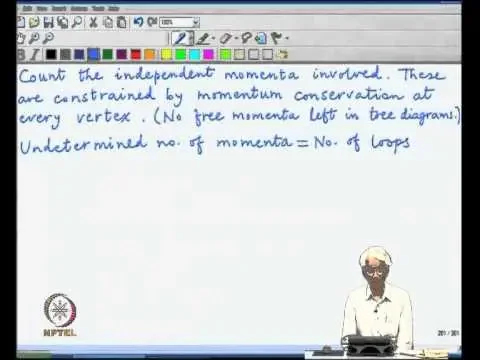 100%
Count the independent momenta involved. These
are constrained by momentum conservation at
every vertex. (No free momenta left in tree diagrams.)
Undetermined no. of momenta = No. of loops
NPTEL
201 / 301